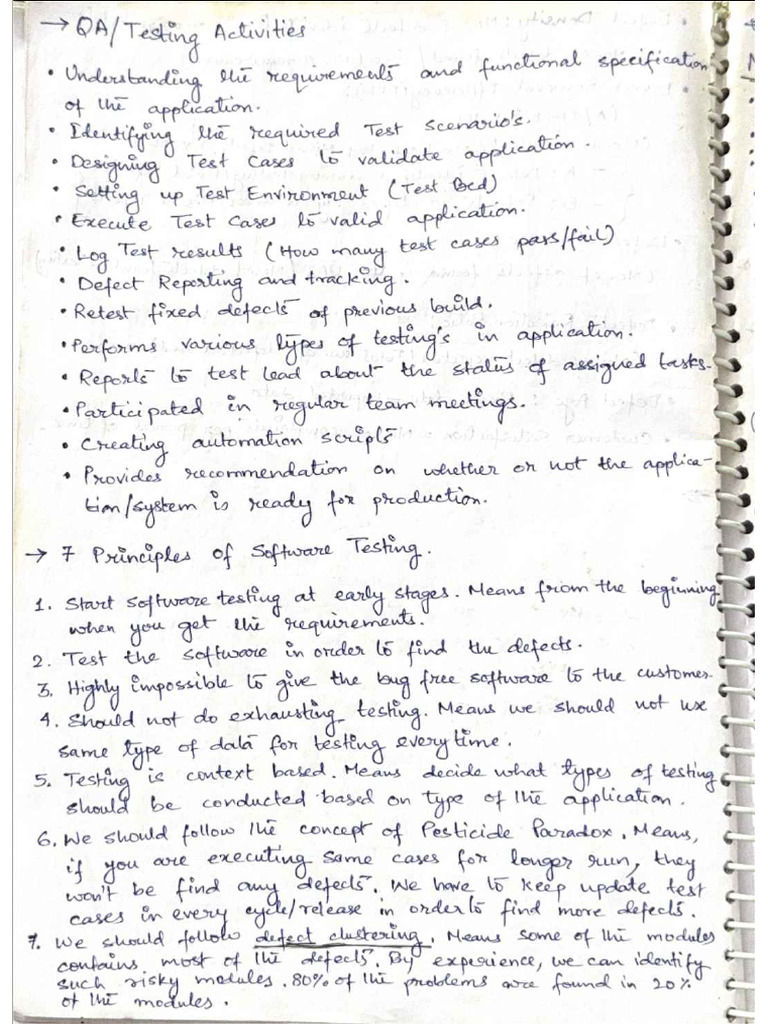 → QA/Testing Activities
• Understanding the requirements and functional specification
of the application.
• Identifying the required Test Scenario's.
• Designing Test Cases to validate application.
• Setting up Test Environment (Test Bed)
• Execute Test Cases to valid application.
• Log Test results (How many test cases pass/fail)
• Defect Reporting and tracking.
• Retest fixed defects of previous build.
• Performs various types of testing's in application.
• Reports to test lead about the status of assigned tasks.
• Participated in regular team meetings.
• Creating automation scripts
• Provides recommendation on whether or not the applica-
tion/system is ready for production.
→ 7 Principles of Software Testing.
1. Start software testing at early stages. Means from the beginning
when you get the requirements.
2. Test the software in order to find the defects.
3. Highly impossible to give the bug free software to the customer.
4. Should not do exhausting testing. Means we should not use
same type of data for testing everytime.
5. Testing is context based. Means decide what types of testing
should be conducted based on type of the application.
6. We should follow the concept of Pesticide Paradox. Means,
if you are executing same cases for longer run, they
won't be find any defects. We have to keep update test
cases in every cycle/release in order to find more defects.
7. We should follow defect clustering. Means some of the modules
contains most of the defects. By experience, we can identify
such risky modules. 80% of the problems are found in 20%
of the modules.